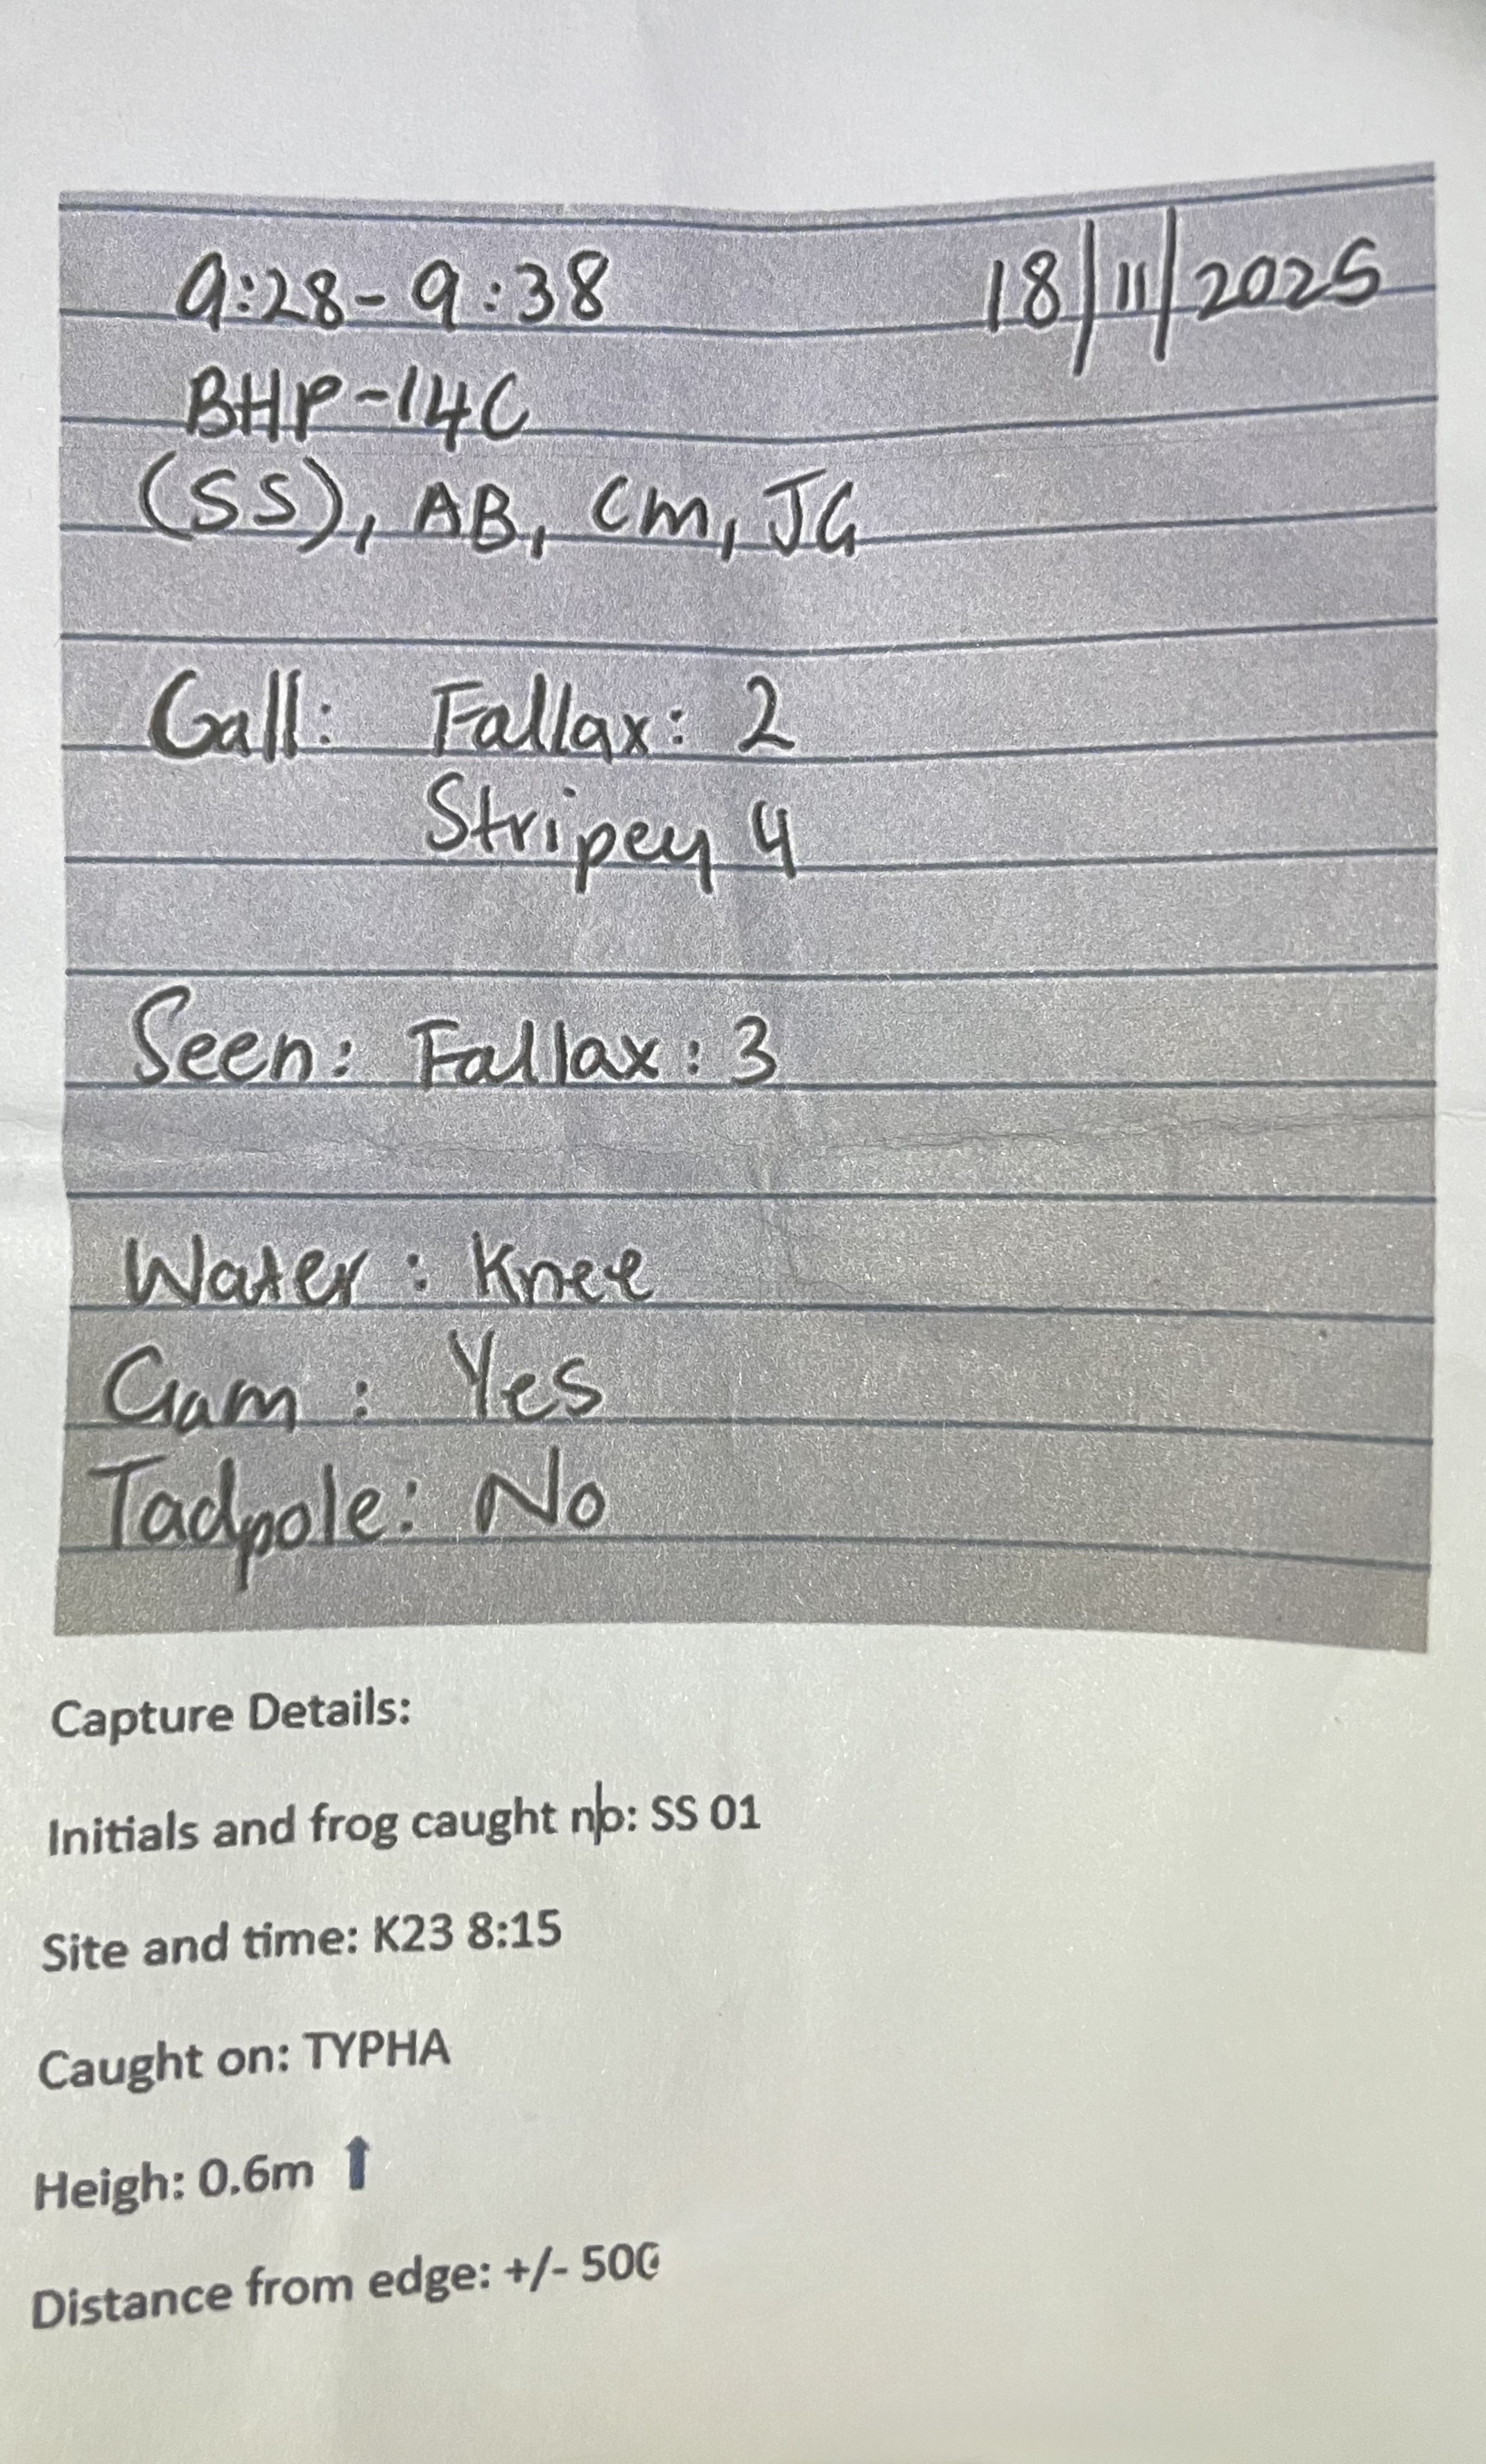 9:28-9:38 18/11/2025
BHP-14C
(SS), AB, CM, JG
Call: Fallax: 2
Stripey 4
Seen: Fallax: 3
Water: Knee
Gam: Yes
Tadpole: No
Capture Details:
Initials and frog caught no: SS 01
Site and time: K23 8:15
Caught on: TYPHA
Heigh: 0.6m ⬆
Distance from edge: +/-